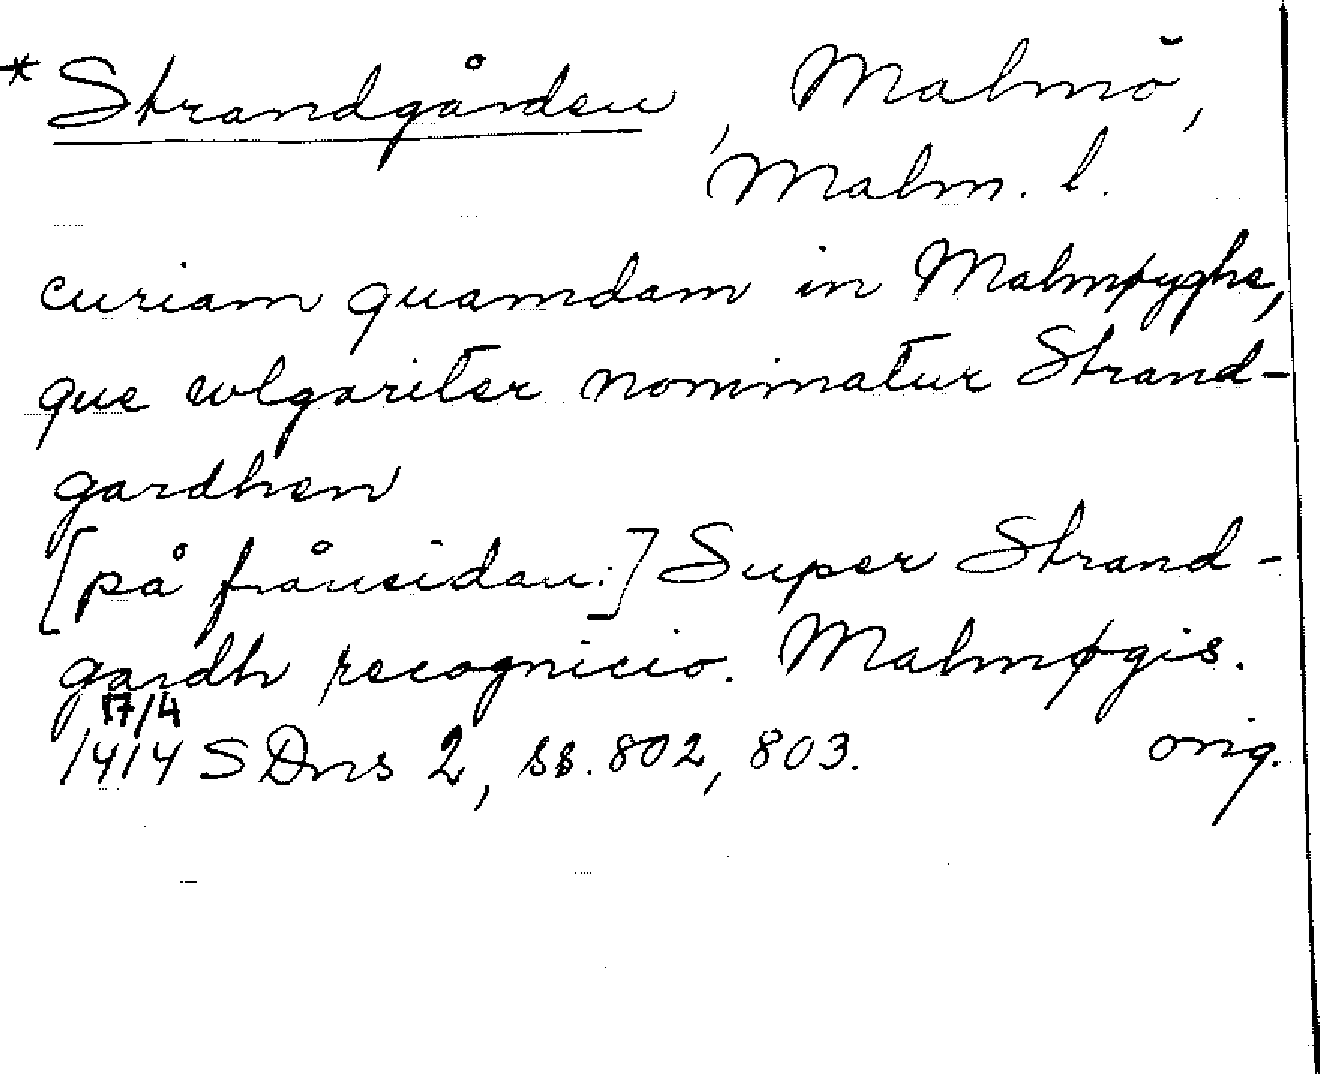 *Strandgården, Malmö,
Malm. l.
curiam quamdam in Malmøyghe,
que wlgariter nominatur Strand-
gardhen
[på frånsidan:] Super Strand-
gardh recognicio. Malmøgis.
17/4
1414 SDns 2, ss. 802, 803. orig.